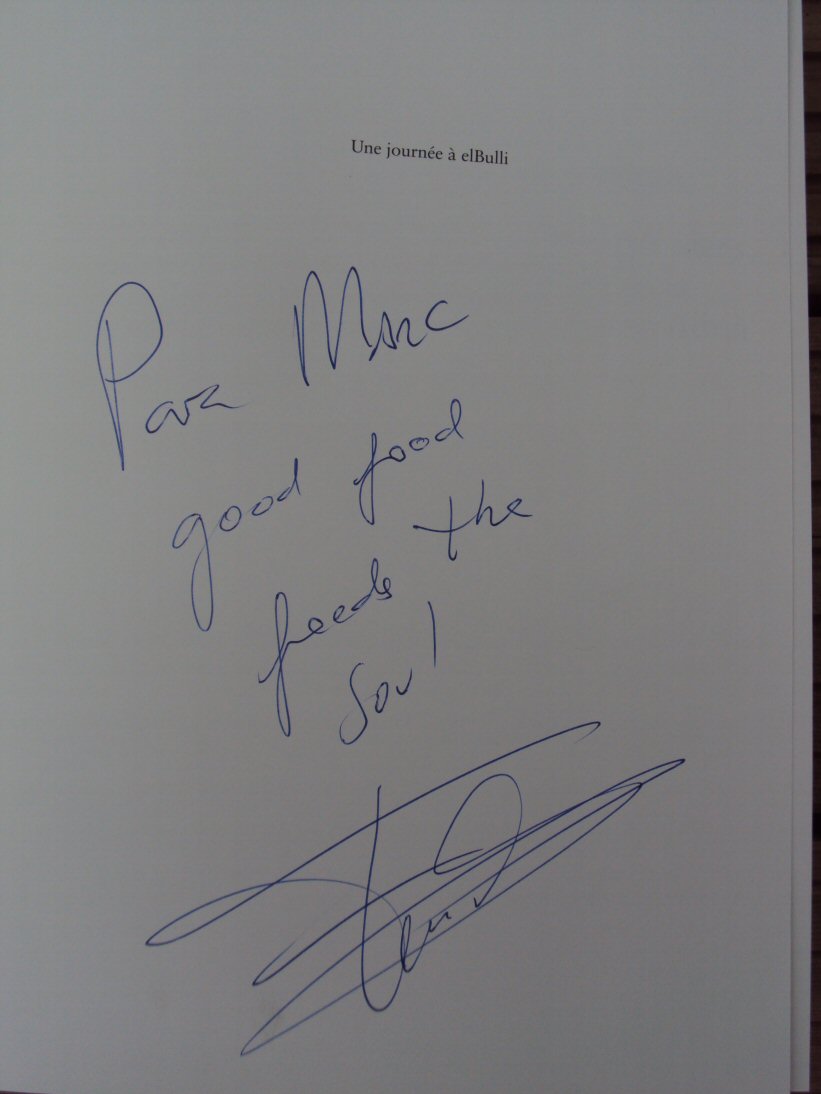 Une journée à elBulli
Para Marc
good food
feeds the
soul